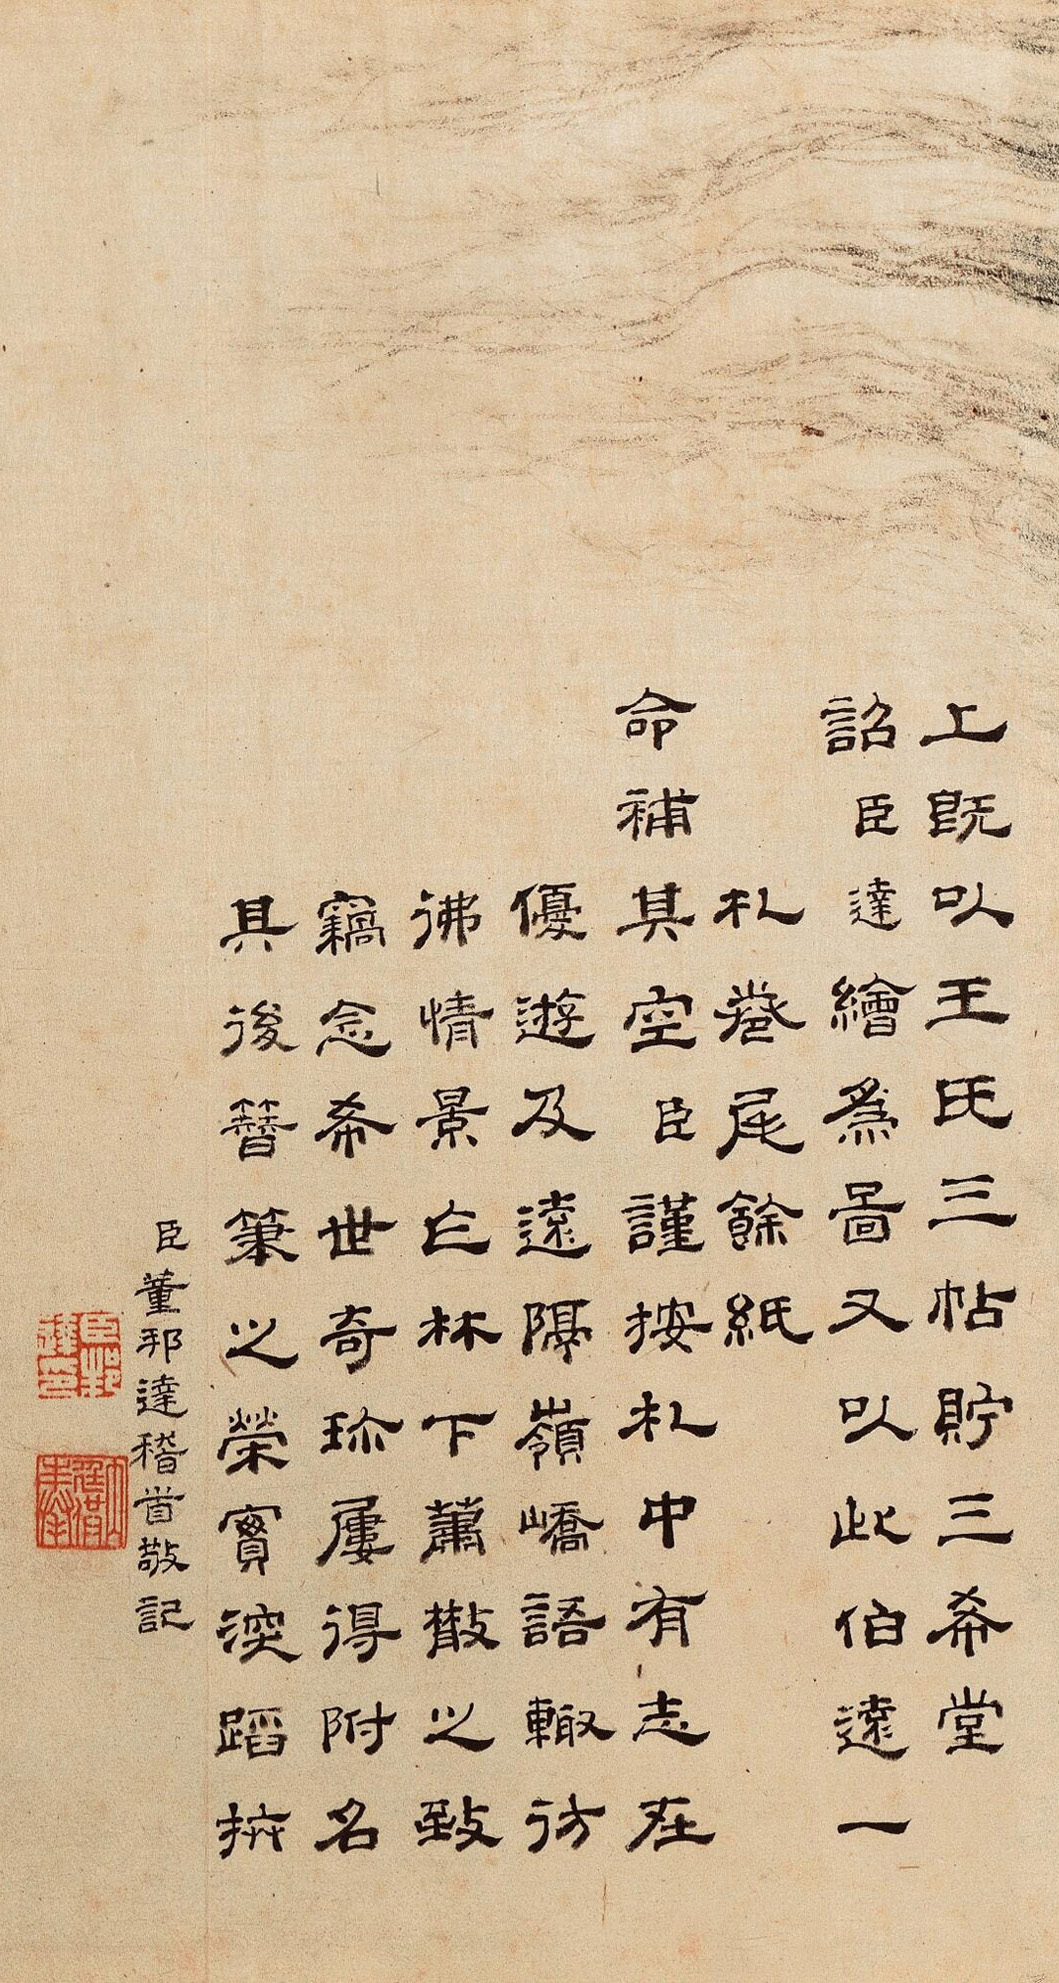 上既以王氏三帖貯三希堂
詔臣達繪為圖又以此伯遠一
札卷尾餘紙
命補其空臣謹按札中有志在
優遊及遠隔嶺嶠語輙彷
彿情景亡林下蕭散之致
竊念希世奇珎屢得附名
其後簮筆之榮實深蹈抃
臣董邦達稽首敬記